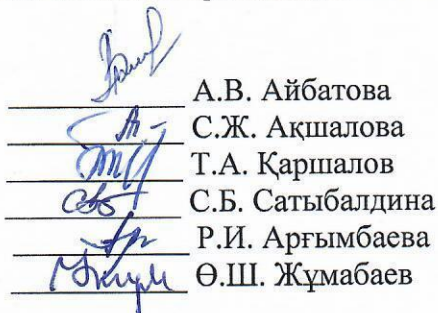 А.В. Айбатова
С.Ж. Ақшалова
Т.А. Қаршалов
С.Б. Сатыбалдина
Р.И. Арғымбаева
Ө.Ш. Жұмабаев